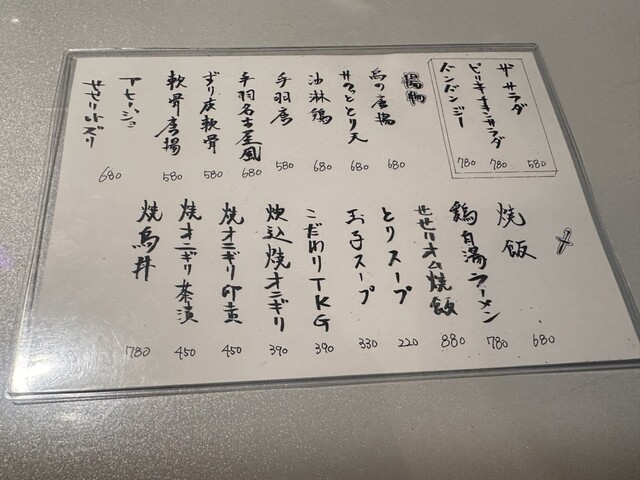 ザサラダ 580
ピリキューチキンサラダ 780
バンバンジー 780
揚物
鳥の唐揚 680
サクっととり天 680
油淋鶏 680
手羽唐 580
手羽名古屋風 680
ずり皮軟骨 580
軟骨唐揚 580
アヒージョ
せせり小ズリ 680
〆
焼飯 680
鶏白湯ラーメン 780
せせりオム焼飯 880
とりスープ 220
玉子スープ 330
こだわりTKG 390
炊込焼オニギリ 390
焼オニギリ卵黄 450
焼オニギリ茶漬 450
焼鳥丼 780